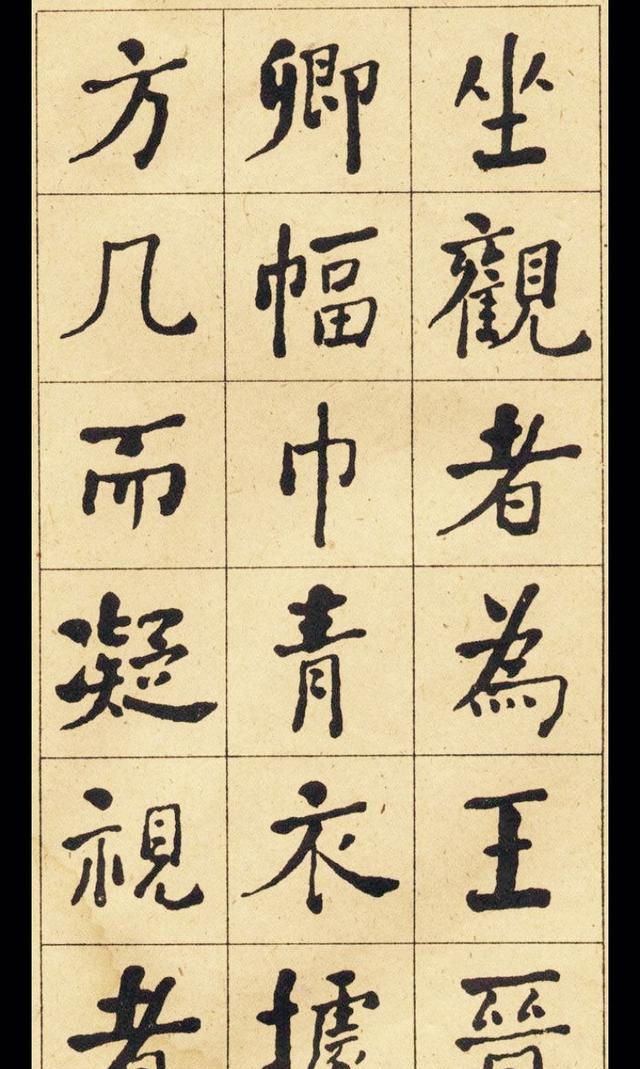 坐觀者為王晉
卿幅巾青衣據
方几而凝視者